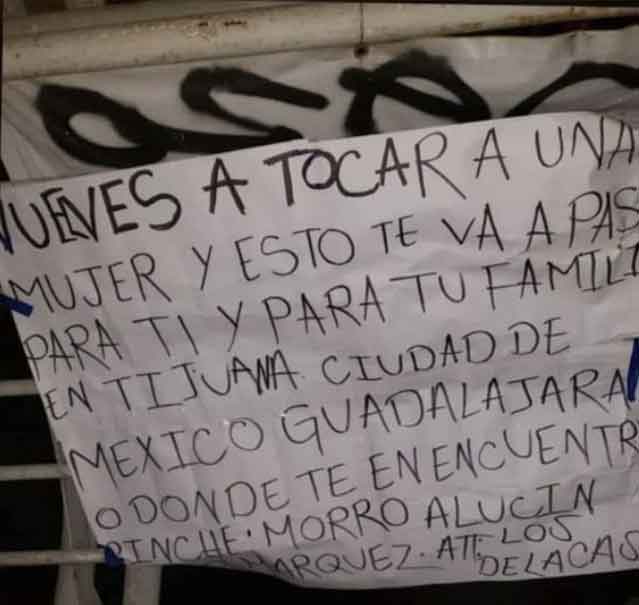 VUELVES A TOCAR A UNA
MUJER Y ESTO TE VA A PAS
PARA TI Y PARA TU FAMILI
EN TIJUANA. CIUDAD DE
MEXICO GUADALAJARA
O DONDE TE ENENCUENTR
PINCHE. MORRO ALUCIN
ARQUEZ. ATT. LOS
DELACAS